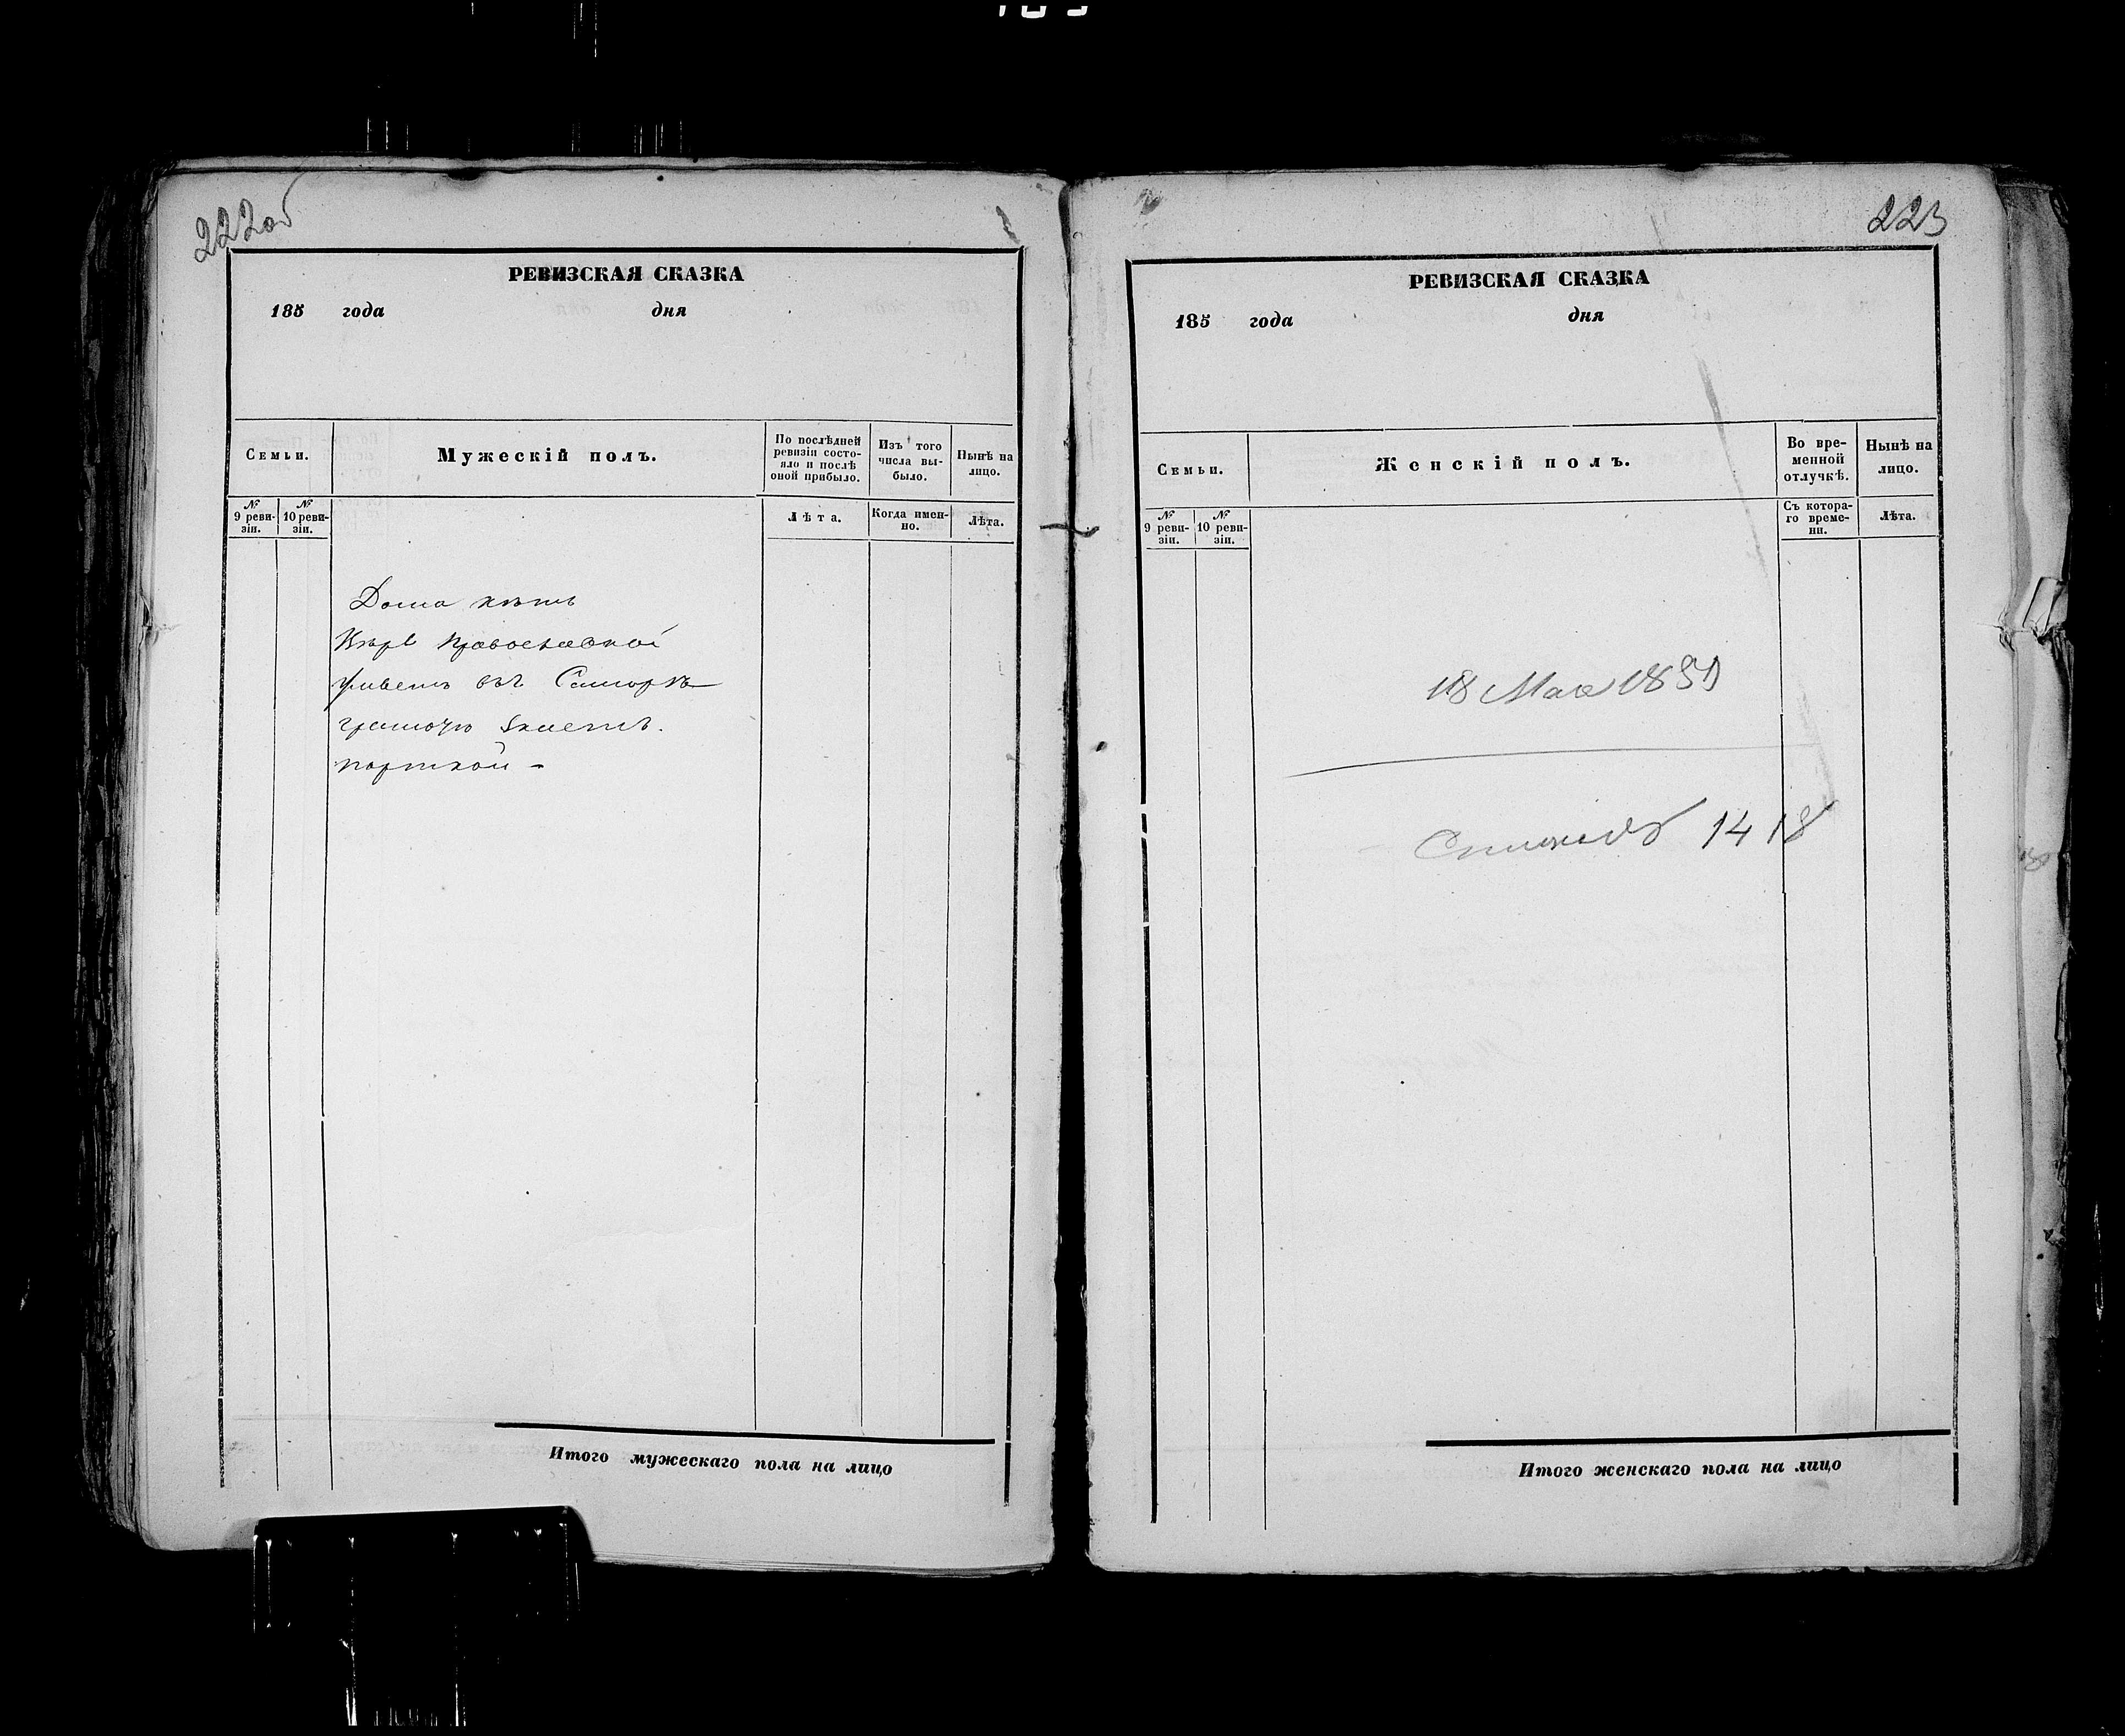 222об
РЕВИЗСКАЯ СКАЗКА
185 года дня
Семьи.
Мужескій полъ.
По послѣдней ревизіи состояло и послѣ оной прибыло.
Изъ того числа выбыло.
Нынѣ на лицо.
№ 9 ревизіи.
№ 10 ревизіи.
Лѣта.
Когда именно.
Лѣта.
Дома нѣтъ
Вѣры православной
живетъ въ
грамоту знаетъ.
портной -
Итого мужескаго пола на лицо
223
РЕВИЗСКАЯ СКАЗКА
185 года дня
Семьи.
Женскій полъ.
Во временной отлучкѣ.
Нынѣ на лицо.
№ 9 ревизіи.
№ 10 ревизіи.
Съ котораго времени.
Лѣта.
18 Мая 1859
1418
Итого женскаго пола на лицо